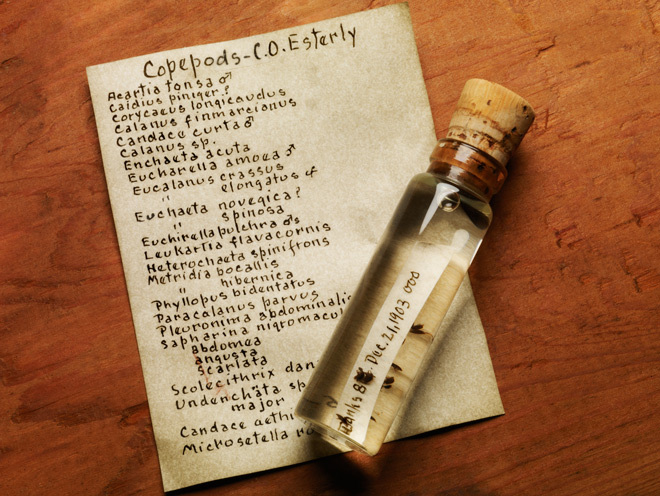 Copepods-C.O.Esterly
Acartia tonsa ♂
Caidius piniger?
Corycaeus longicaudus
Calanus finmarcianus
Candace curta♂
Calanus sp.
Enchaeta acuta
Eucharella amoea ♂
Eucalanus crassus
" elongatus
Euchaeta novegica?
" spinosa
Euchirella pulchra ♂s
Leukartia flavacornis
Heterochaeta spiniftons
Metridia bocallis
" hibernica
Phyllopus bidentatus
Paracalanus parvus
Pleuronima abdominalis
Sapharina nigromacul
abdomea
angusta
scarlata
Scolecithrix dani
Undenchäta sp
major
Candace aethi
Microsetella
Dec. 21, 1903 000